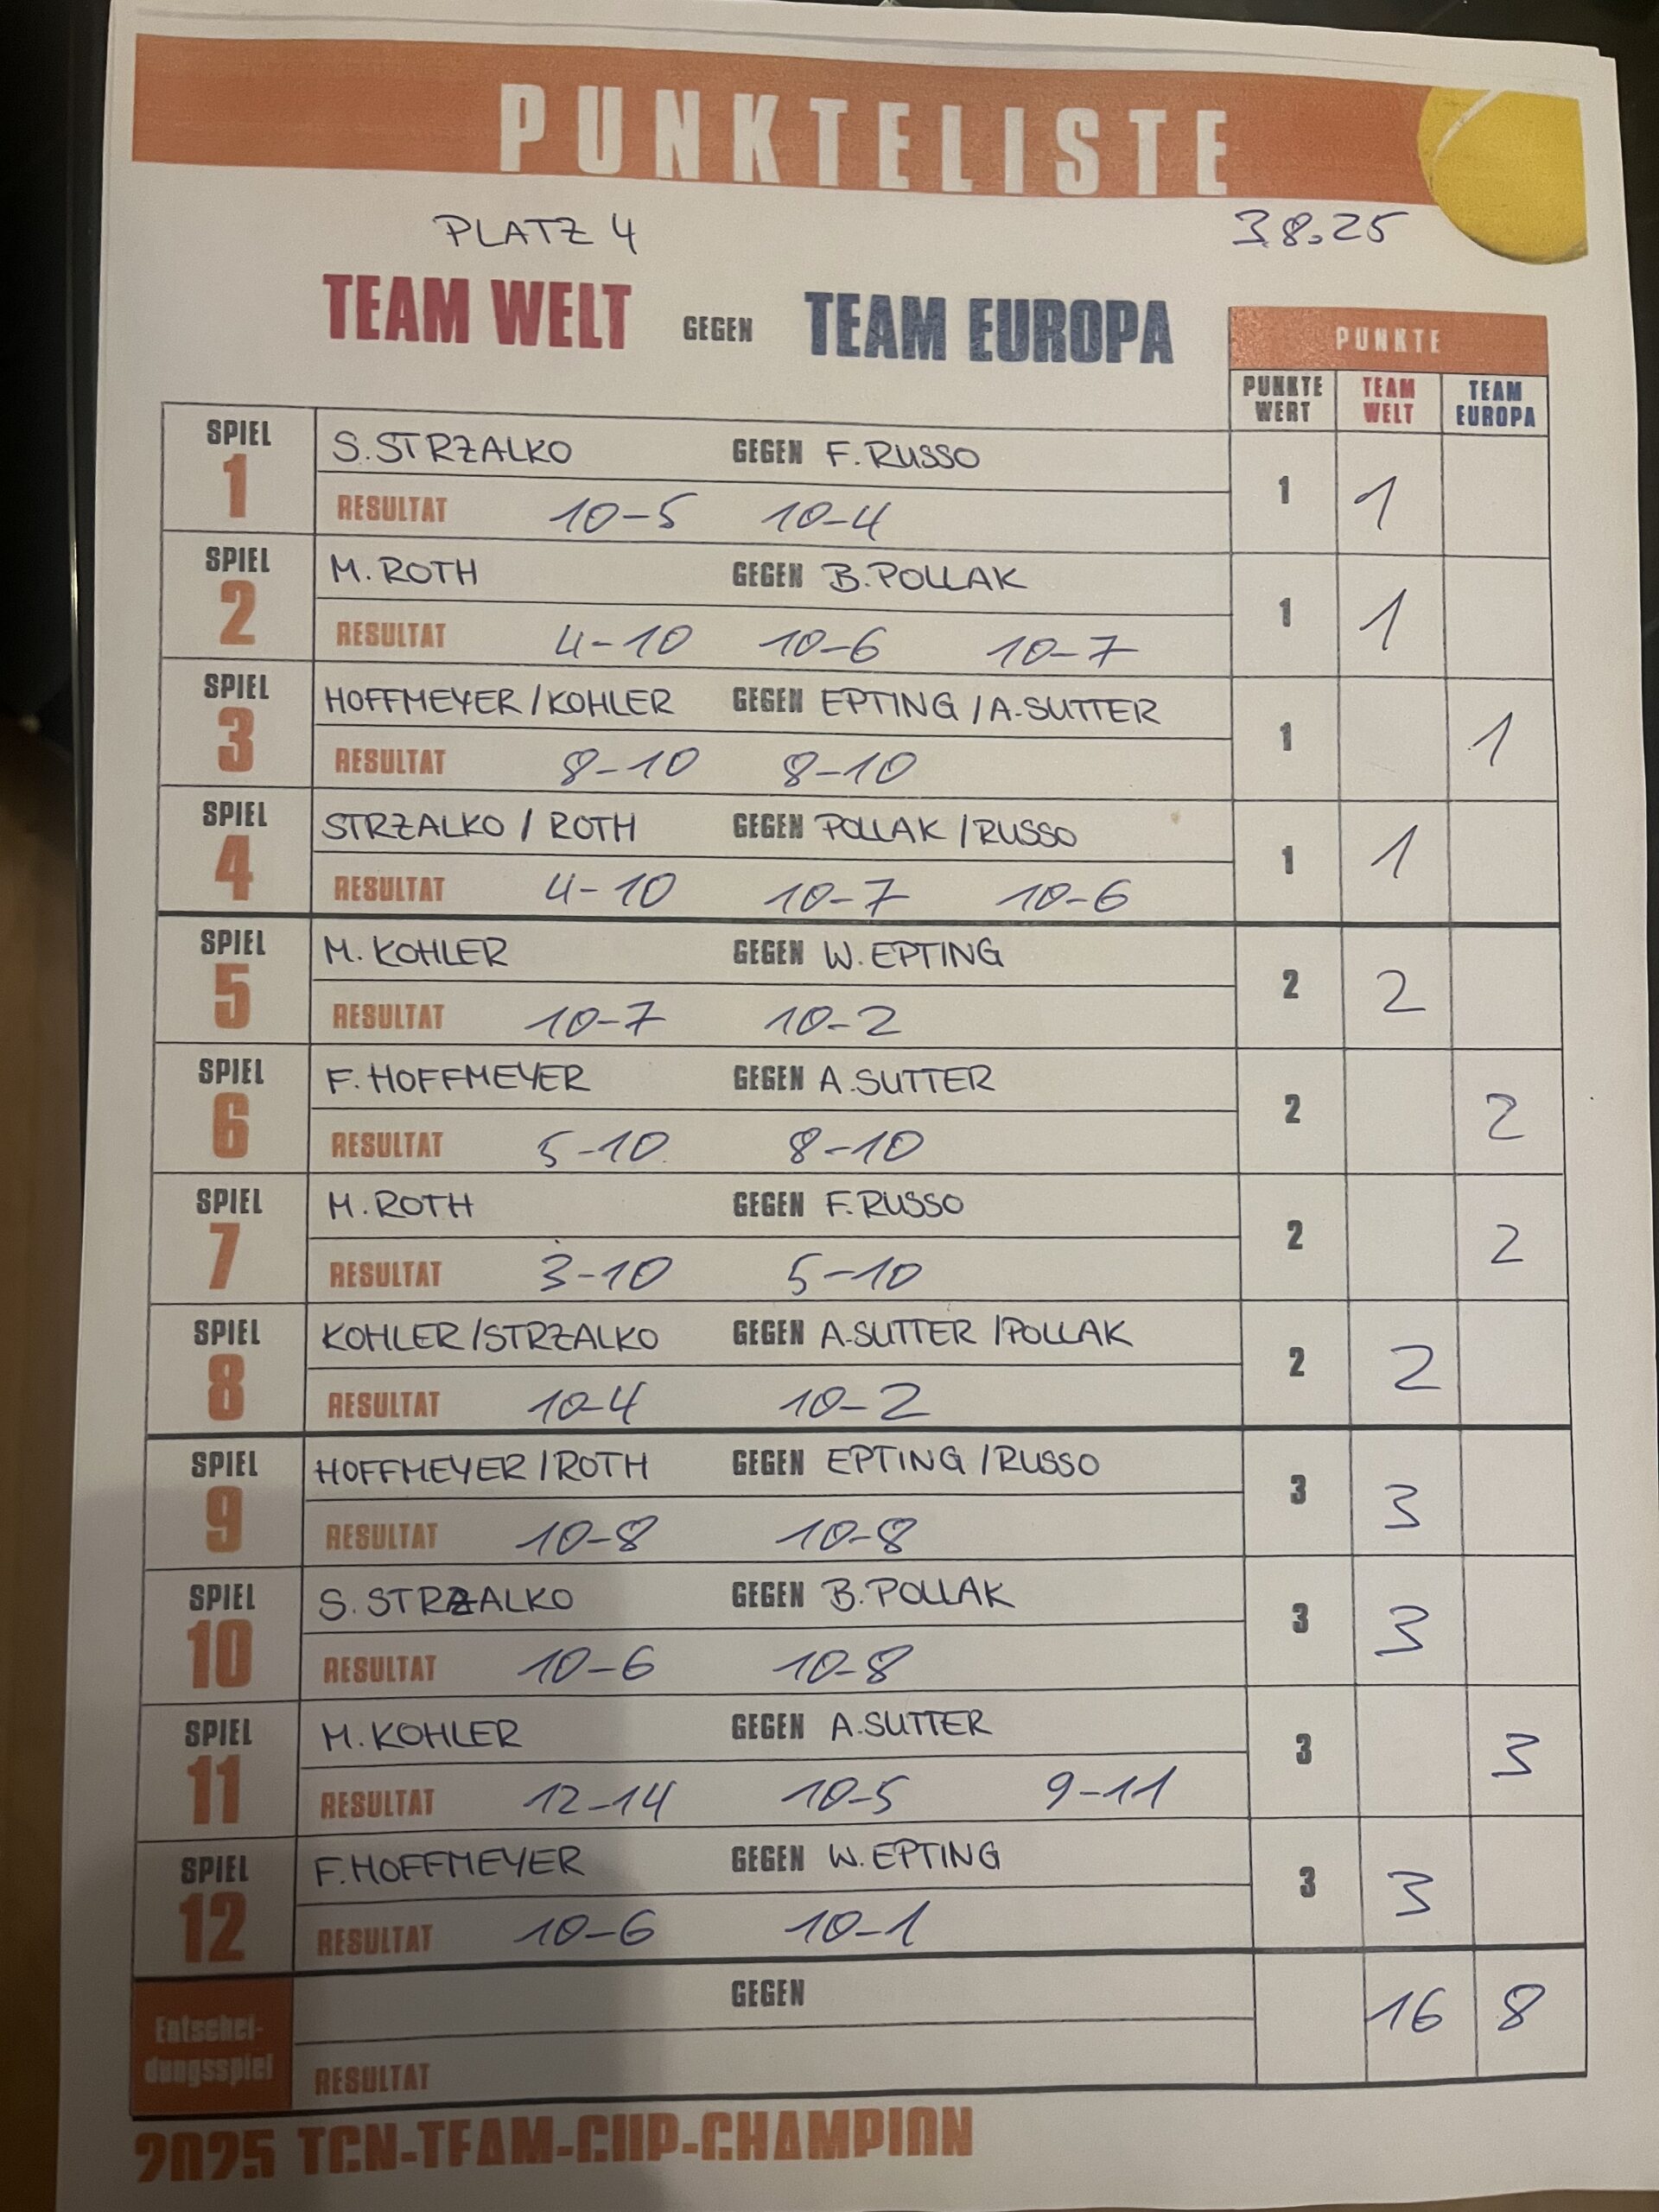 PUNKTELISTE
PLATZ 4 3.8.25
TEAM WELT GEGEN TEAM EUROPA
PUNKTE
PUNKTE WERT TEAM WELT TEAM EUROPA
SPIEL 1 S. STRZALKO GEGEN F. RUSSO
RESULTAT 10-5 10-4 1 1
SPIEL 2 M. ROTH GEGEN B. POLLAK
RESULTAT 4-10 10-6 10-7 1 1
SPIEL 3 HOFFMEYER / KOHLER GEGEN EPTING / A. SUTTER
RESULTAT 8-10 8-10 1 1
SPIEL 4 STRZALKO / ROTH GEGEN POLLAK / RUSSO
RESULTAT 4-10 10-7 10-6 1 1
SPIEL 5 M. KOHLER GEGEN W. EPTING
RESULTAT 10-7 10-2 2 2
SPIEL 6 F. HOFFMEYER GEGEN A. SUTTER
RESULTAT 5-10 8-10 2 2
SPIEL 7 M. ROTH GEGEN F. RUSSO
RESULTAT 3-10 5-10 2 2
SPIEL 8 KOHLER / STRZALKO GEGEN A. SUTTER / POLLAK
RESULTAT 10-4 10-2 2 2
SPIEL 9 HOFFMEYER / ROTH GEGEN EPTING / RUSSO
RESULTAT 10-8 10-8 3 3
SPIEL 10 S. STRZALKO GEGEN B. POLLAK
RESULTAT 10-6 10-8 3 3
SPIEL 11 M. KOHLER GEGEN A. SUTTER
RESULTAT 12-14 10-5 9-11 3 3
SPIEL 12 F. HOFFMEYER GEGEN W. EPTING
RESULTAT 10-6 10-1 3 3
Entschei-
dungsspiel GEGEN 16 8
RESULTAT
2025 TCN-TEAM-CUP-CHAMPION